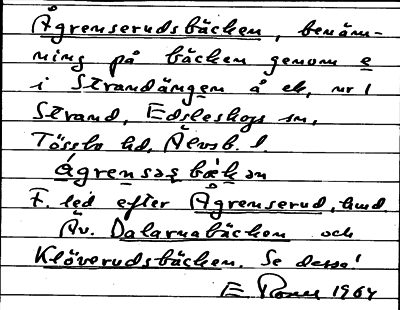 Ågrenserudsbäcken, benäm-
ning på bäcken genom e
i Strandängen å ek, nr 1
Strand, Edsleskogs sn,
Tössbo hd, Älvsb. l.
ágrensasbäkən
F. led efter Ågrenserud, hmd.
Äv. Dalarnabäcken och
Klöverudsbäcken. Se dessa!
E 1964